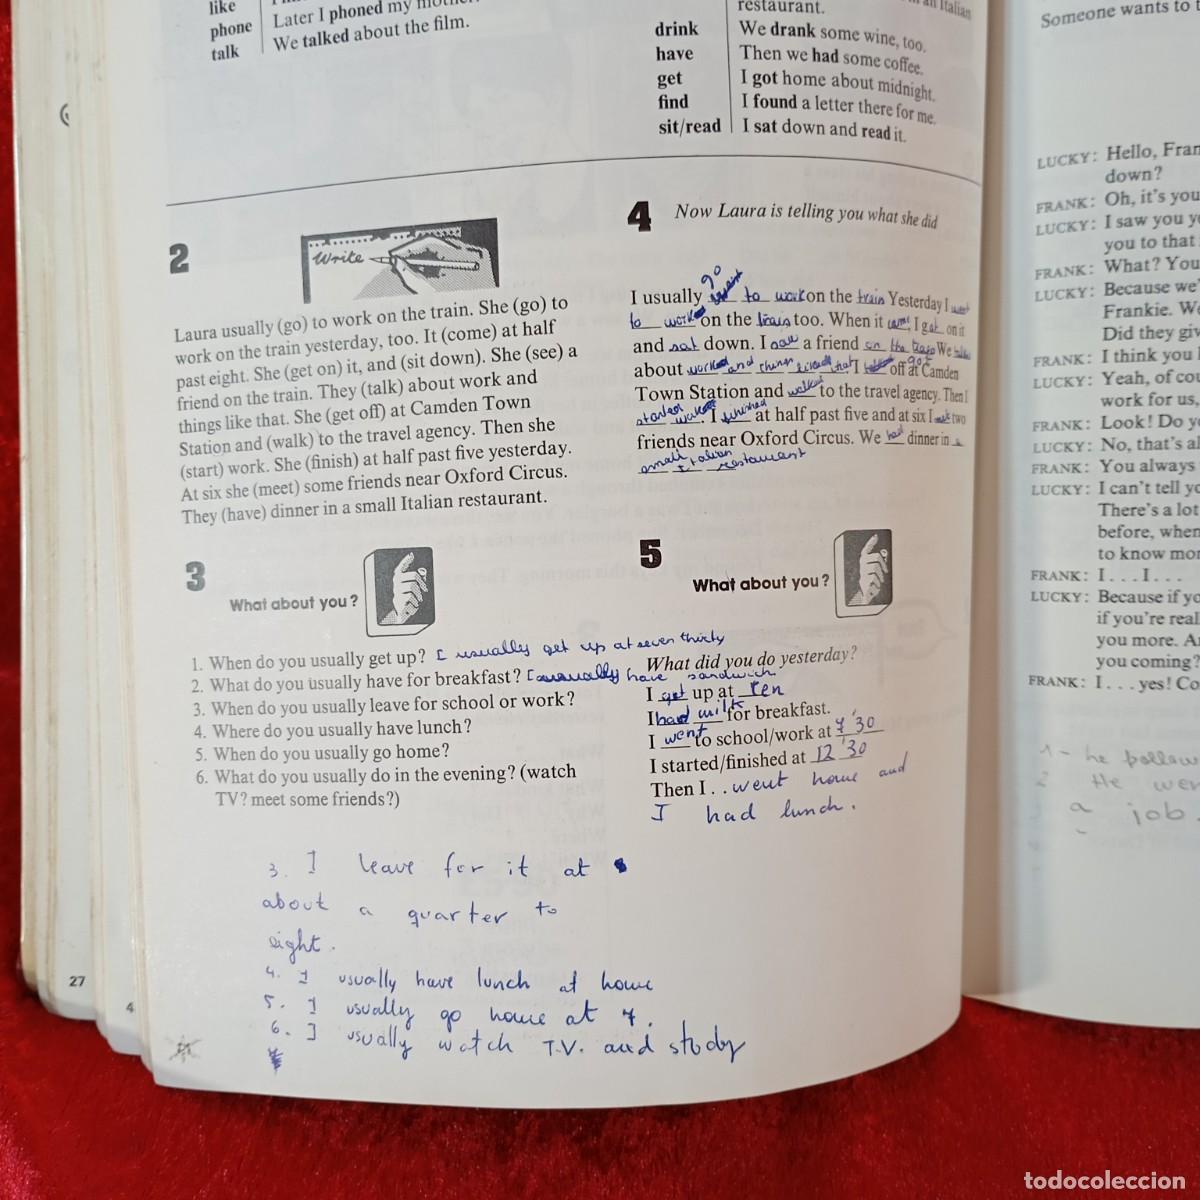 like
phone
talk
Later I phoned my mother.
We talked about the film.
restaurant.
Italian
drink We drank some wine, too.
have Then we had some coffee.
get I got home about midnight.
find I found a letter there for me.
sit/read I sat down and read it.
2
Write
Laura usually (go) to work on the train. She (go) to
work on the train yesterday, too. It (come) at half
past eight. She (get on) it, and (sit down). She (see) a
friend on the train. They (talk) about work and
things like that. She (get off) at Camden Town
Station and (walk) to the travel agency. Then she
(start) work. She (finish) at half past five yesterday.
At six she (meet) some friends near Oxford Circus.
They (have) dinner in a small Italian restaurant.
3
What about you?
1. When do you usually get up? I usually get up at seven thirty
2. What do you usually have for breakfast? I usually have sandwich
3. When do you usually leave for school or work?
4. Where do you usually have lunch?
5. When do you usually go home?
6. What do you usually do in the evening? (watch
TV? meet some friends?)
3. I leave for it at
about a quarter to
eight.
4. I usually have lunch at home
5. I usually go home at 7.
6. I usually watch T.V. and study
27
4
4 Now Laura is telling you what she did
go
I usually to work on the train Yesterday I went
to work on the train too. When it came, I got on it
and sat down. I saw a friend on the train We talked
about work and things that I got off at Camden
Town Station and walked to the travel agency. Then I
started work. I finished at half past five and at six I met two
friends near Oxford Circus. We had dinner in a
small Italian restaurant
5
What about you?
What did you do yesterday?
I get up at ten
I had milk for breakfast.
I went to school/work at 7'30
I started/finished at 12'30
Then I . . went home and
I had lunch.
Someone wants to
LUCKY: Hello, Fran
down?
FRANK: Oh, it's you
LUCKY: I saw you
you to that
FRANK: What? You
LUCKY: Because we'
Frankie. We
Did they giv
FRANK: I think you
LUCKY: Yeah, of cou
work for us,
FRANK: Look! Do y
LUCKY: No, that's al
FRANK: You always
LUCKY: I can't tell yo
There's a lot
before, when
to know mor
FRANK: I . . . I . . .
LUCKY: Because if yo
if you're real
you more. A
you coming?
FRANK: I . . . yes! Co
1 - he follow
2 He wen
a job.
todocoleccion